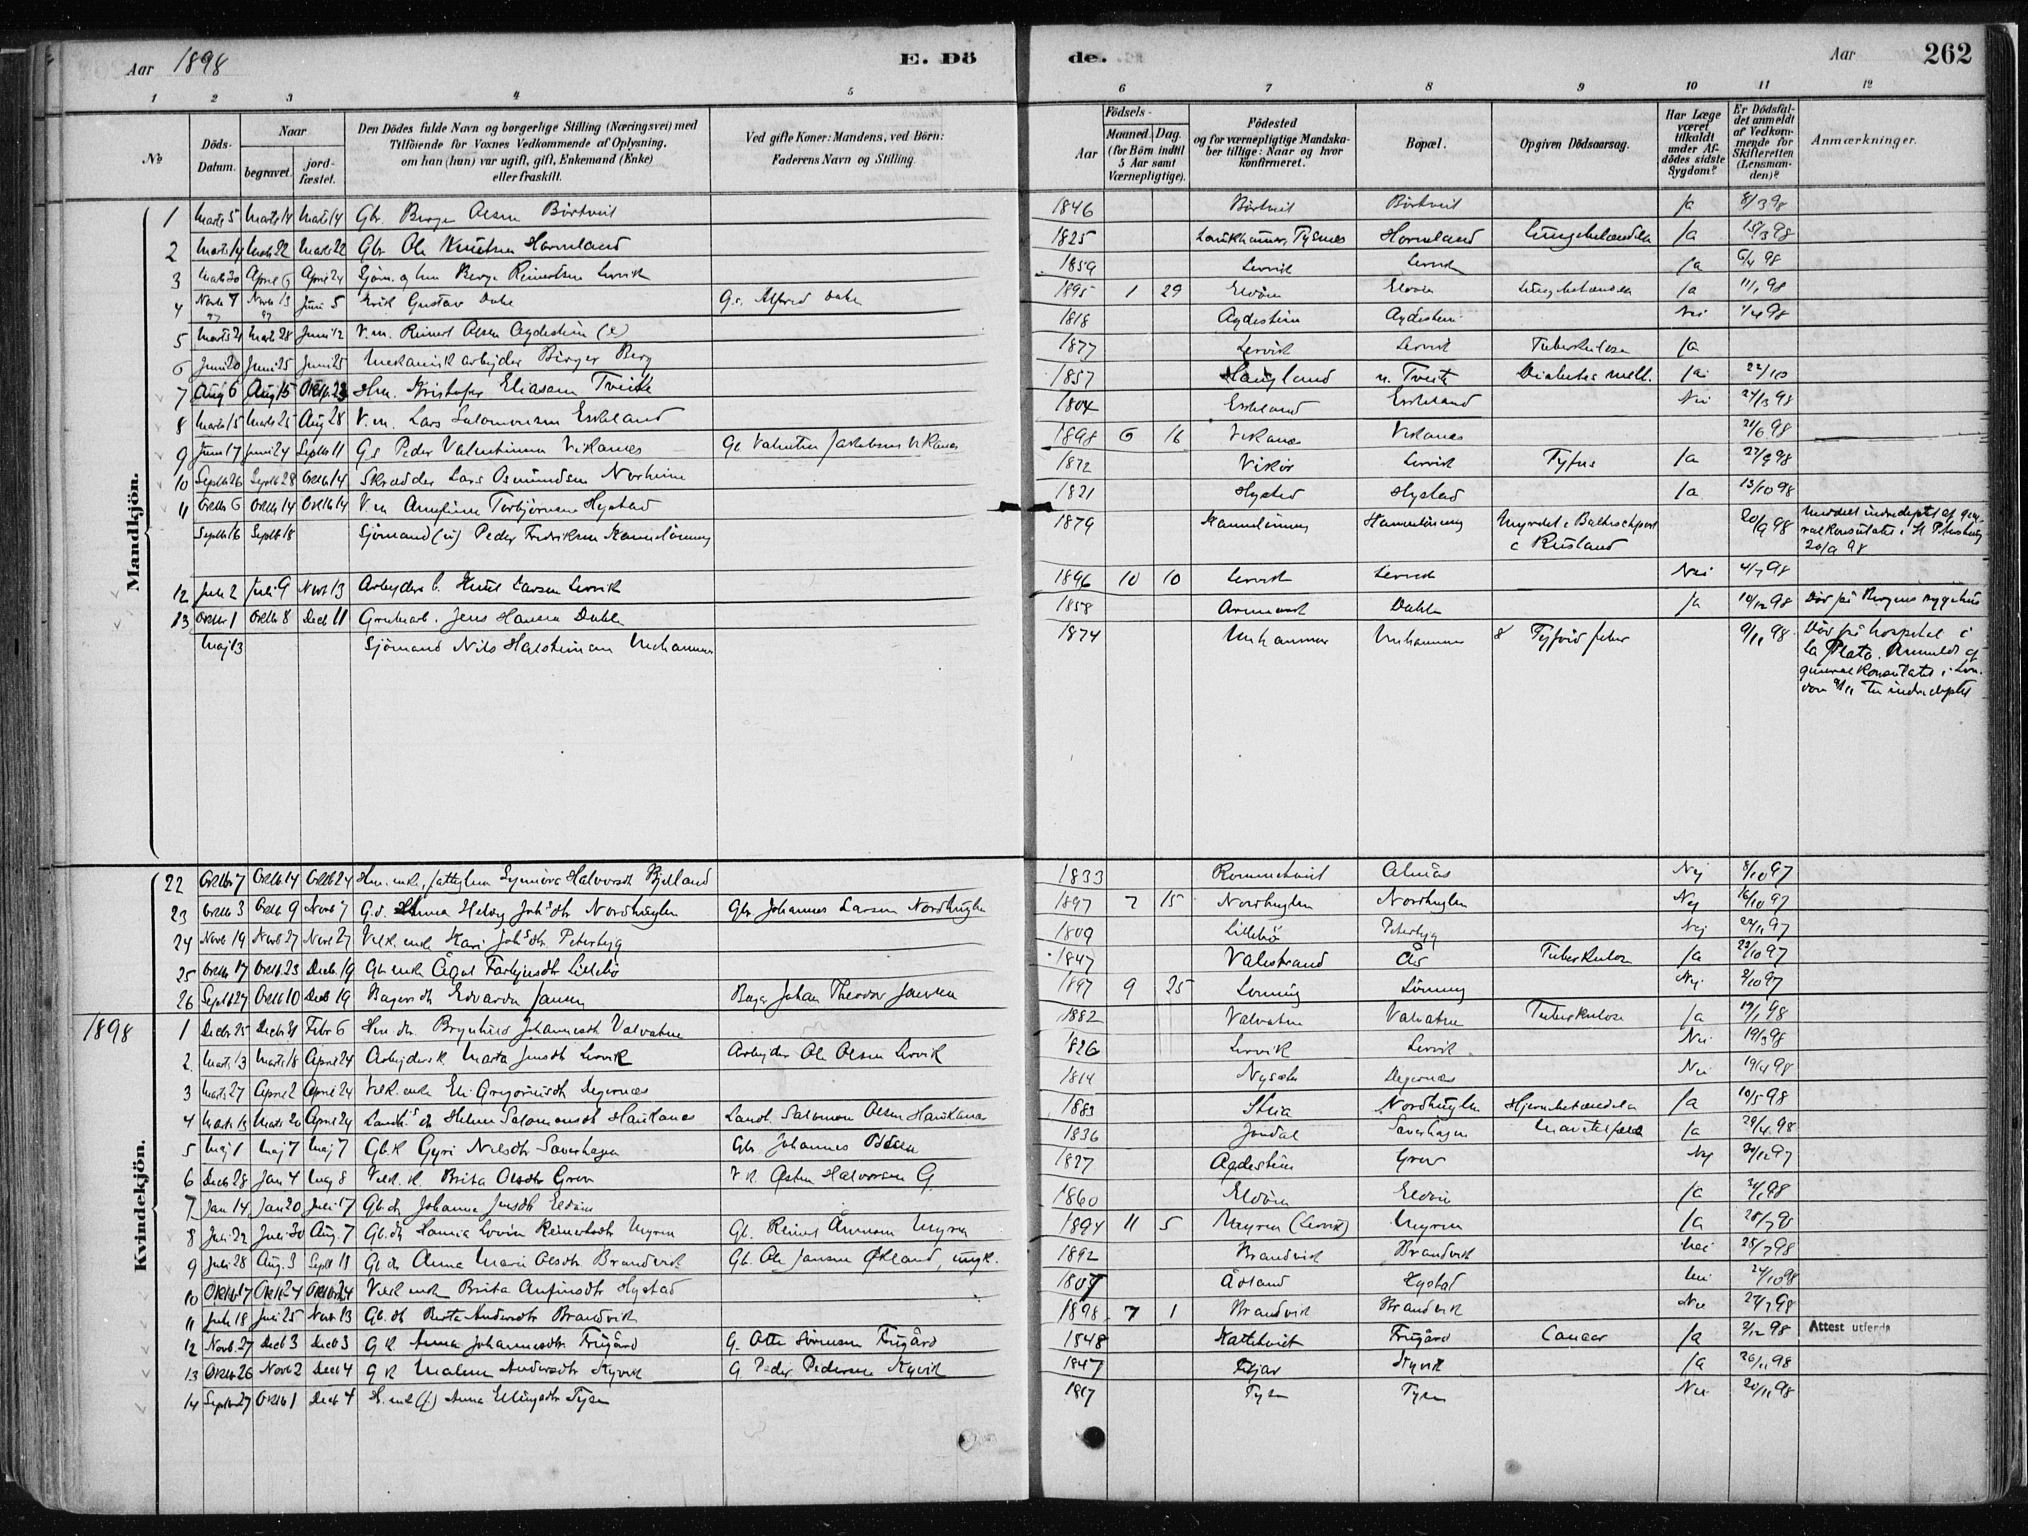 Aar 1898
E. Dö
de.
Aar
262
1 2 3 4 5 6 7 8 9 10 11 12
№
Döds-Datum.
Naar
begravet.
jord-fæstet.
Den Dödes fulde Navn og borgerlige Stilling (Næringsvei) med
Tilföiende for Voxnes Vedkommende af Oplysning,
om han (hun) var ugift, gift, Enkemand (Enke)
eller fraskilt.
Ved gifte Koner: Mandens, ved Börn:
Faderens Navn og Stilling.
Födsels-
Aar
Maaned. Dag.
(for Börn indtil
5 Aar samt
Værnepligtige).
Födested
og for værnepligtige Mandska-
ber tillige: Naar og hvor
konfirmeret.
Bopæl.
Opgiven Dödsaarsag.
Har Læge
været
tilkaldt
under Af-
dödes sidste
Sygdom?
Er Dödsfal-
det anmeldt
af Vedkom-
mende for
Skifteretten
(Lensman-
den)?
Anmærkninger.
Mandkjön.
1 Marts 5 Marts 14 Marts 14 Gbr. Berge Olsen Börtveit 1846 Börtveit Börtveit Ja 8/3 98
2 Marts 14 Marts 22 Marts 22 Gbr. Ole Knutsen Horneland 1825 Tysnes Horneland Lungebetændelse Ja 15/3 98
3 Marts 30 April 6 April 24 Sjöm. Berge Reinertsen Lervik 1859 Lervik Lervik Ja 6/4 98
4 Novb 7 Novb 13 Juni 5 Erik Gustav Dahl G.s. Alfred Dahl 1895 1 29 Eldöen Eldöen Lungebetændelse Ja 11/1 98
5 Marts 21 Marts 28 Juni 12 V.m. Reinert Olsen Agdestein (e) 1818 Agdestein Agdestein Nei 1/4 98
6 Juni 20 Juni 25 Juni 25 Mekanisk arbejder Birger Berg 1877 Lervik Lervik Tuberkulose Ja
7 Aug 6 Aug 15 Oktb. 23 Hm. Kristofer Eliasen Tveite 1857 Haugland n. Tveite Diabetes mell. Ja 22/10
8 Marts 15 Marts 25 Aug 28 V.m. Lars Salomonsen Eskeland 1804 Eskeland Eskeland Nei 27/3 98
9 Juni 17 Juni 24 Septb 11 G.s Peder Valentinsen Vikanes Gb. Valentin Jakobsen Vikanes 1898 6 16 Vikanes Vikanes 21/6 98
10 Septb 26 Septb 28 Oktb 14 Skrædder Lars Osmundsen Norheim 1872 Vikör Lervik Tyfus Ja 27/9 98
11 Oktb 6 Oktb 14 Oktb 14 V.m Torbjörnsen Hystad 1821 Hystad Hystad Ja 13/10 98
Septb 16 Septb 18 Sjömand (u) Peder Fredriksen 1879 Myrdet i Baltischport i Rusland 20/9 98 Meddelt indredeptet af generalkonsulatet i St Petersburg 20/9 98
12 Juli 2 Juli 9 Novb 13 Arbejders b. Knut Larsen Lervik 1896 10 10 Lervik Lervik Nei 4/7 98
13 Oktb 1 Oktb 8 Decb 11 Grubearb. Jens Hansen Dahle 1858 Dahle Ja 14/12 98 Död på Bergens sygehus
Maj 13 Sjömand Nils Halsteinsen Uehammer 1874 Uehammer Uehammer Tyfoid feber 9/11 98 Död på hospital i La Plata. Anmeldt af generalkonsulatet i London 9/11 til indredeptet
Kvindekjön.
22 Oktb 7 Oktb 14 Oktb 24 Hm. enke, fattiglem Synnöva Halvorsdt Bjelland 1833 Rommetveit Almås Nej 8/10 97
23 Oktb 3 Oktb 9 Novb 7 G.d. Anna Helvig Johs dtr Nordhuglen Gbr Johannes Larsen Nordhuglen 1897 7 15 Nordhuglen Nordhuglen Nej 16/10 97
24 Novb 19 Novb 27 Novb 27 Vilk. enke Kari Johs dtr. Petersbyg 1809 Lillebö Petersbyg Nej 24/11 97
25 Oktb 17 Oktb 23 Decb 19 Gb enke Ågot Torbjnsdtr Lillebö 1847 Valestrand Ås Tuberkulose Ja 23/10 97
26 Septb 27 Oktb 10 Decb 19 Bagers dt Edvarda Jansen Bager Johan Theodor Jansen 1897 9 25 Lönning Lönning Nej 2/10 97
1898
1 Decb 25 Decb 31 Febr 6 Hm dtr. Brynhild Johannesdt Valvatne 1882 Valvatne Valvatne Tuberkulose Ja 19/1 98
2 Marts 13 Marts 18 April 24 Arbejdersk Marta Jensdt Lervik Arbejder Ole Olsen Lervik 1826 Lervik Lervik Nei 19/3 98
3 Marts 27 April 2 April 24 Vilk. enke Eli Gregoriusdt Degernæs 1814 Nysæter Degernæs Nei 19/4 98
4 Marts 13 Marts 20 April 24 Landh.s dt Helene Salomonsdt Haukanes Landh. Salomon Olsen Haukanes 1883 Nordhuglen Hjernebetændelse Ja 10/5 98
5 Maj 1 Maj 7 Maj 7 Gb.k Gyri Nilsdtr Sæverhagen Gbr Johannes 1836 Jondal Sæverhagen Ja 29/4 98
6 Decb 28 Jan 4 Maj 8 Vilk. k. Brita Olsdt Grov V.k. Östen Halvorsen G 1827 Agdestein Grov Nej 31/12 97
7 Jan 14 Jan 20 Juli 17 Gb. dt Johanna Jensdt Eldöen 1860 Eldöen Eldöen Ja
8 Juli 22 Juli 30 Aug. 7 Gb. dt Reinertsdt Myren Gb. Reinert Myren 1894 11 5 Myren (Lervik) Myren Ja 28/7 98
9 Juli 28 Aug. 3 Septb 18 Gb dt Anna Marie Olsdtr Brandvik Gb. Ole Jansen Økland, ungk. 1892 Brandvik Brandvik Nei 28/7 98
10 Oktb 17 Oktb 24 Oktb 24 Vilk enk Brita Anfinsdtr Hystad 1807 Ådland Hystad Nei 24/10 98
11 Juli 18 Juli 25 Novb 13 Gb. dt Berta Andersdtr Brandvik 1898 7 1 Brandvik Brandvik Nei 27/7 98
12 Novb. 27 Decb 3 Decb 3 G k Anna Johannesdtr Frugård G. Otto Sörensen Frugård 1848 Kattetveit Frugård Cancer Ja 3/12 98 Attest utferda
13 Oktb 26 Novb 2 Decb 4 G k Malene Andersdtr Kyvik G Peder Pedersen Kyvik 1847 Fitjar Kyvik Ja 20/11 98
14 Septb 27 Oktb 1 Decb 4 H. enk (f) Anna Ellingsdtr Tyse 1817 Tyse Tyse Nei 20/11 98